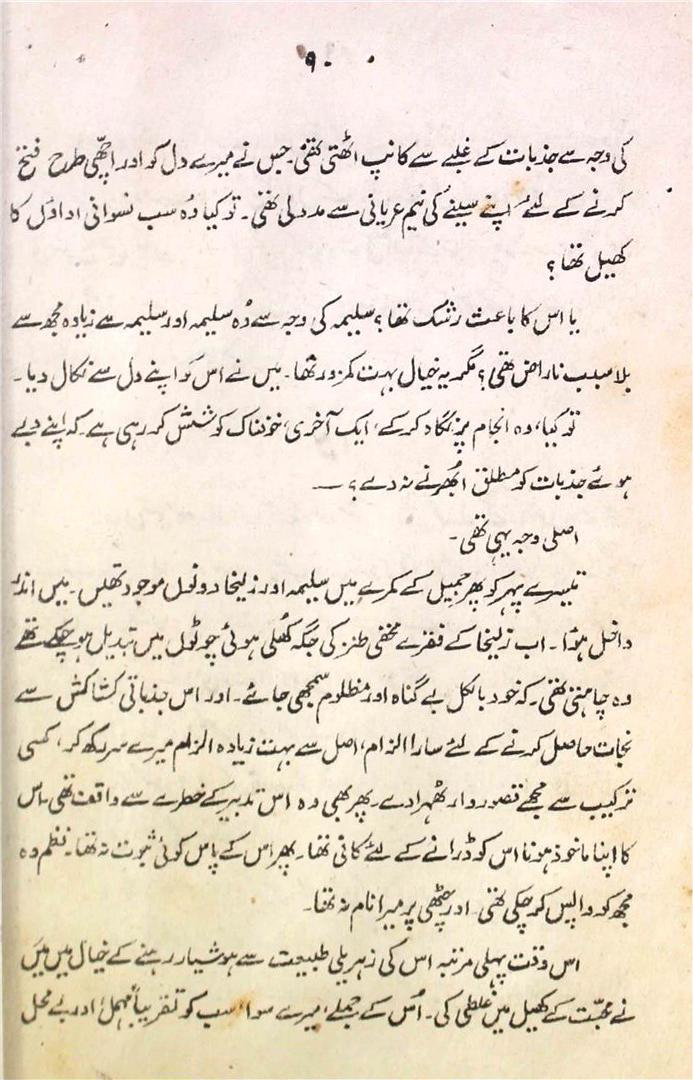 ۹۰
کی وجہ سے جذبات کے غلبے سے کانپ اٹھتی تھی۔ جس نے میرے دل کو اور اچھی طرح فتح
کرنے کے لئے اپنے سینے کی نیم عریانی سے مدد لی تھی۔ تو کیا وہ سب نسوانی اداؤں کا
کھیل تھا؟
یا اس کا باعث رشک تھا؟ سلیمہ کی وجہ سے وہ سلیمہ اور سلیمہ سے زیادہ مجھ سے
بلا سبب ناراض تھی؟ مگر یہ خیال بہت کمزور تھا۔ میں نے اس کو اپنے دل سے نکال دیا۔
تو کیا، وہ انجام پر نگاہ کر کے، ایک آخری، خوفناک کوشش کر رہی ہے۔ کہ اپنے دبے
ہوئے جذبات کو مطلق ابھرنے نہ دے؟ —
اصلی وجہ یہی تھی۔
تیسرے پہر کو پھر جمیل کے کمرے میں سلیمہ اور زلیخا دونوں موجود تھیں۔ میں اندر
داخل ہؤا۔ اب زلیخا کے فقرے مخفی طنز کی جگہ کھلی ہوئی چوٹوں میں تبدیل ہو چکے تھے
وہ چاہتی تھی۔ کہ خود بالکل بے گناہ اور مظلوم سمجھی جائے۔ اور اس جذباتی کشاکش سے
نجات حاصل کرنے کے لئے سارا الزام، اصل سے بہت زیادہ الزام میرے سر رکھ کر، کسی
ترکیب سے مجھے قصوروار ٹھہرا دے۔ پھر بھی وہ اس تدبیر کے خطرے سے واقف تھی۔ اس
کا اپنا ماخوذ ہونا اس کو ڈرانے کے لئے کافی تھا۔ پھر اس کے پاس کوئی ثبوت نہ تھا۔ نظم وہ
مجھ کو واپس کر چکی تھی۔ اور چٹھی پر میرا نام نہ تھا۔
اس وقت پہلی مرتبہ اس کی زہریلی طبیعت سے ہوشیار رہنے کے خیال میں میں
نے محبت کے کھیل میں غلطی کی۔ اس کے جملے، میرے سوا، سب کو تقریباً مہمل، اور بے محل